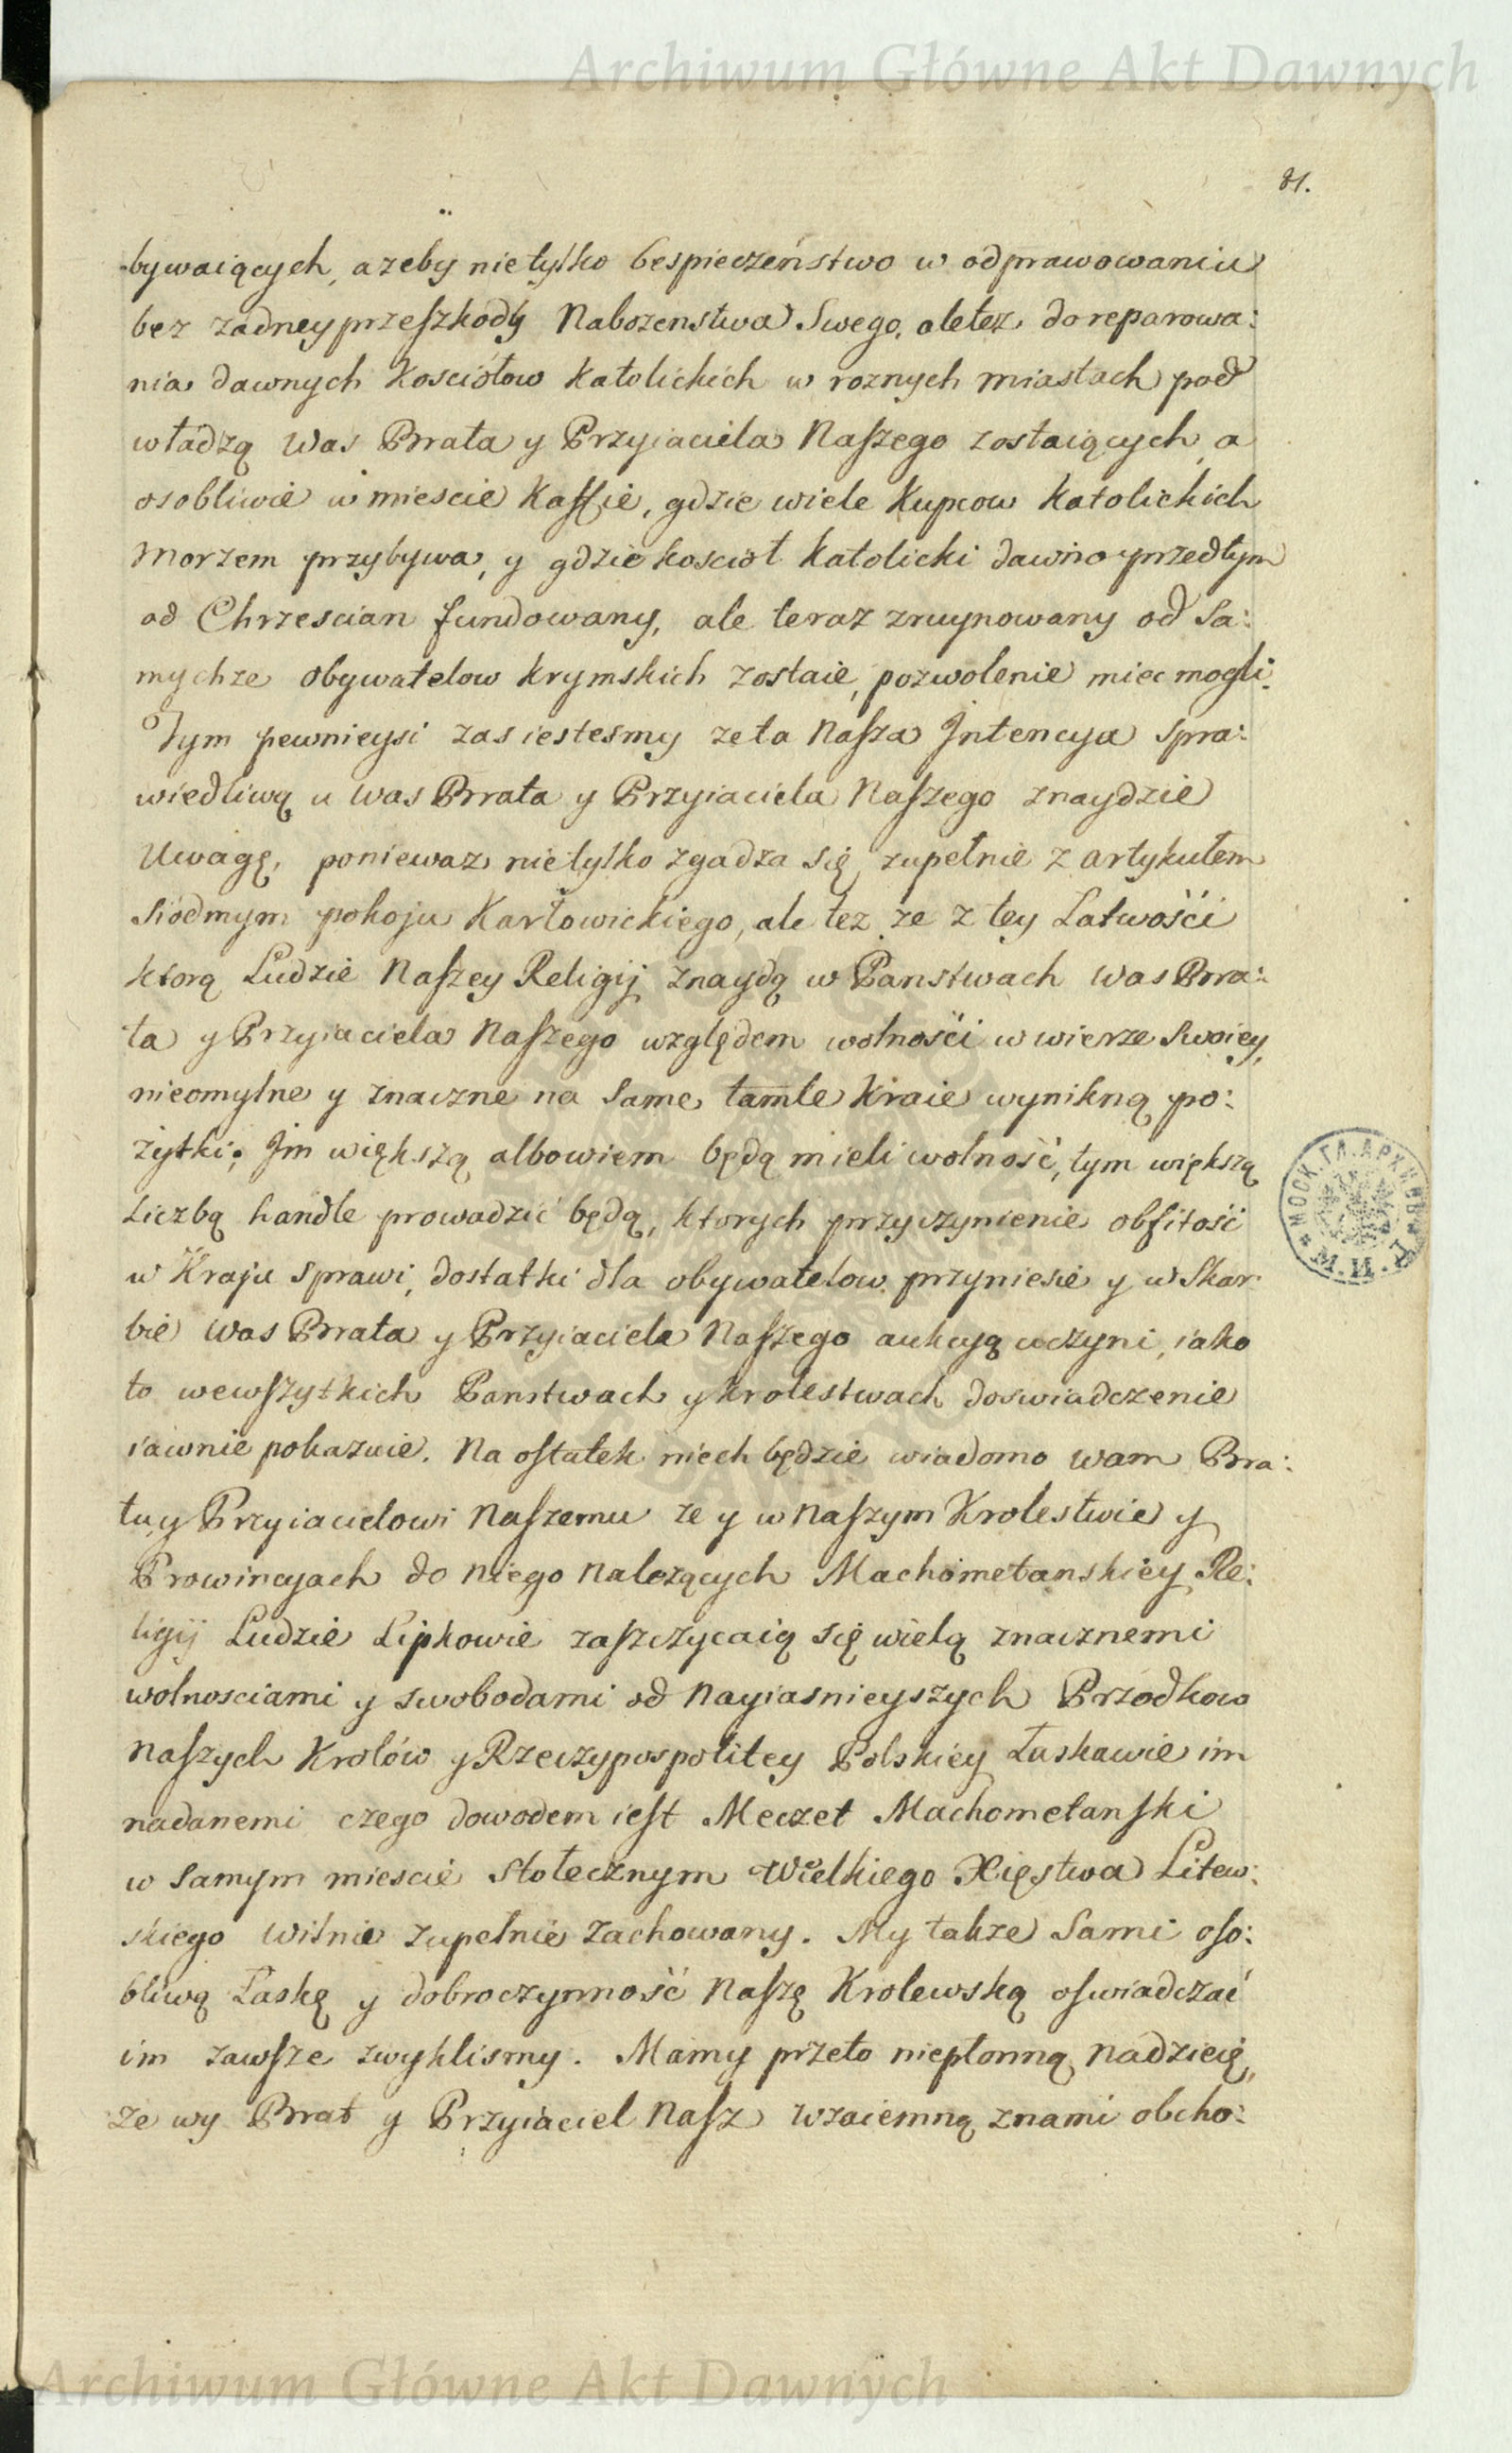 Archiwum Główne Akt Dawnych
81.
bywaiących, azeby nietylko bespieczeństwo w odprawowaniu
bez zadney przeszkody Nabozenstwa Swego, aletez do reparowa:
nia dawnych Kosciołow Katolickich w roznych miastach pod
władzą Was Brata y Przyiaciela Naszego zostaiących, a
osobliwie w miescie Kaffie, gdzie wiele Kupcow Katolickich
morzem przybywa, y gdzie kosciół Katolicki dawno przedtym
od Chrzescian fundowany, ale teraz zruynowany od Sa:
mychze obywatelow krymskich zostaie, pozwolenie miec mogli.
Tym pewnieysi zas iestesmy ze ta Nasza Jntencya Spra:
wiedliwą u Was Brata y Przyiaciela Naszego znaydzie
Uwagę, poniewaz nietylko zgadza się zupełnie z artykułem
Siódmym pokoju Karłowickiego, ale tez ze z tey Łatwośći
ktorą Ludzie Naszey Religij znaydą w Panstwach Was Bra:
ta y Przyiaciela Naszego względem wolnośći w wierze Swoiey,
nieomylne y znaczne na Same tamte Kraie wynikną po:
żytki; Jm większą albowiem będą mieli wolność, tym większą
Liczbą handle prowadzić będą, ktorych przyczynienie obfitość
w Kraju Sprawi, dostatki dla obywatelow przyniesie y w Skar
bie Was Brata y Przyiaciela Naszego aukcyą uczyni, iako
to wewszytkich Panstwach y krolestwach doswiadczenie
iawnie pokazuie. Na ostatek niech będzie wiadomo Wam Bra:
tu y Przyiacielowi Naszemu ze y w Naszym Krolestwie y
Prowincyach do niego Nalezących Machometanskiey Re:
ligij Ludzie Lipkowie zaszczycaią się wielą znacznemi
wolnosciami y swobodami od Nayiasnieyszych Przodkow
Naszych Królów y Rzeczypospolitey Polskiey Łaskawie im
nadanemi czego dowodem iest Meczet Machometanski
w Samym miescie Stołecznym Wielkiego Xięstwa Litew:
skiego Wilnie zupełnie zachowany. My takze Sami oso:
bliwą Łaskę y dobroczynność Naszę Krolewską oswiadczać
im zawsze zwyklismy. Mamy przeto niepłonną Nadzieię,
ze wy Brat y Przyiaciel Nasz wzaiemną znami obcho:
МОСК. ГЛ. АРХИВЪ
М. И. Д.
Archiwum Główne Akt Dawnych